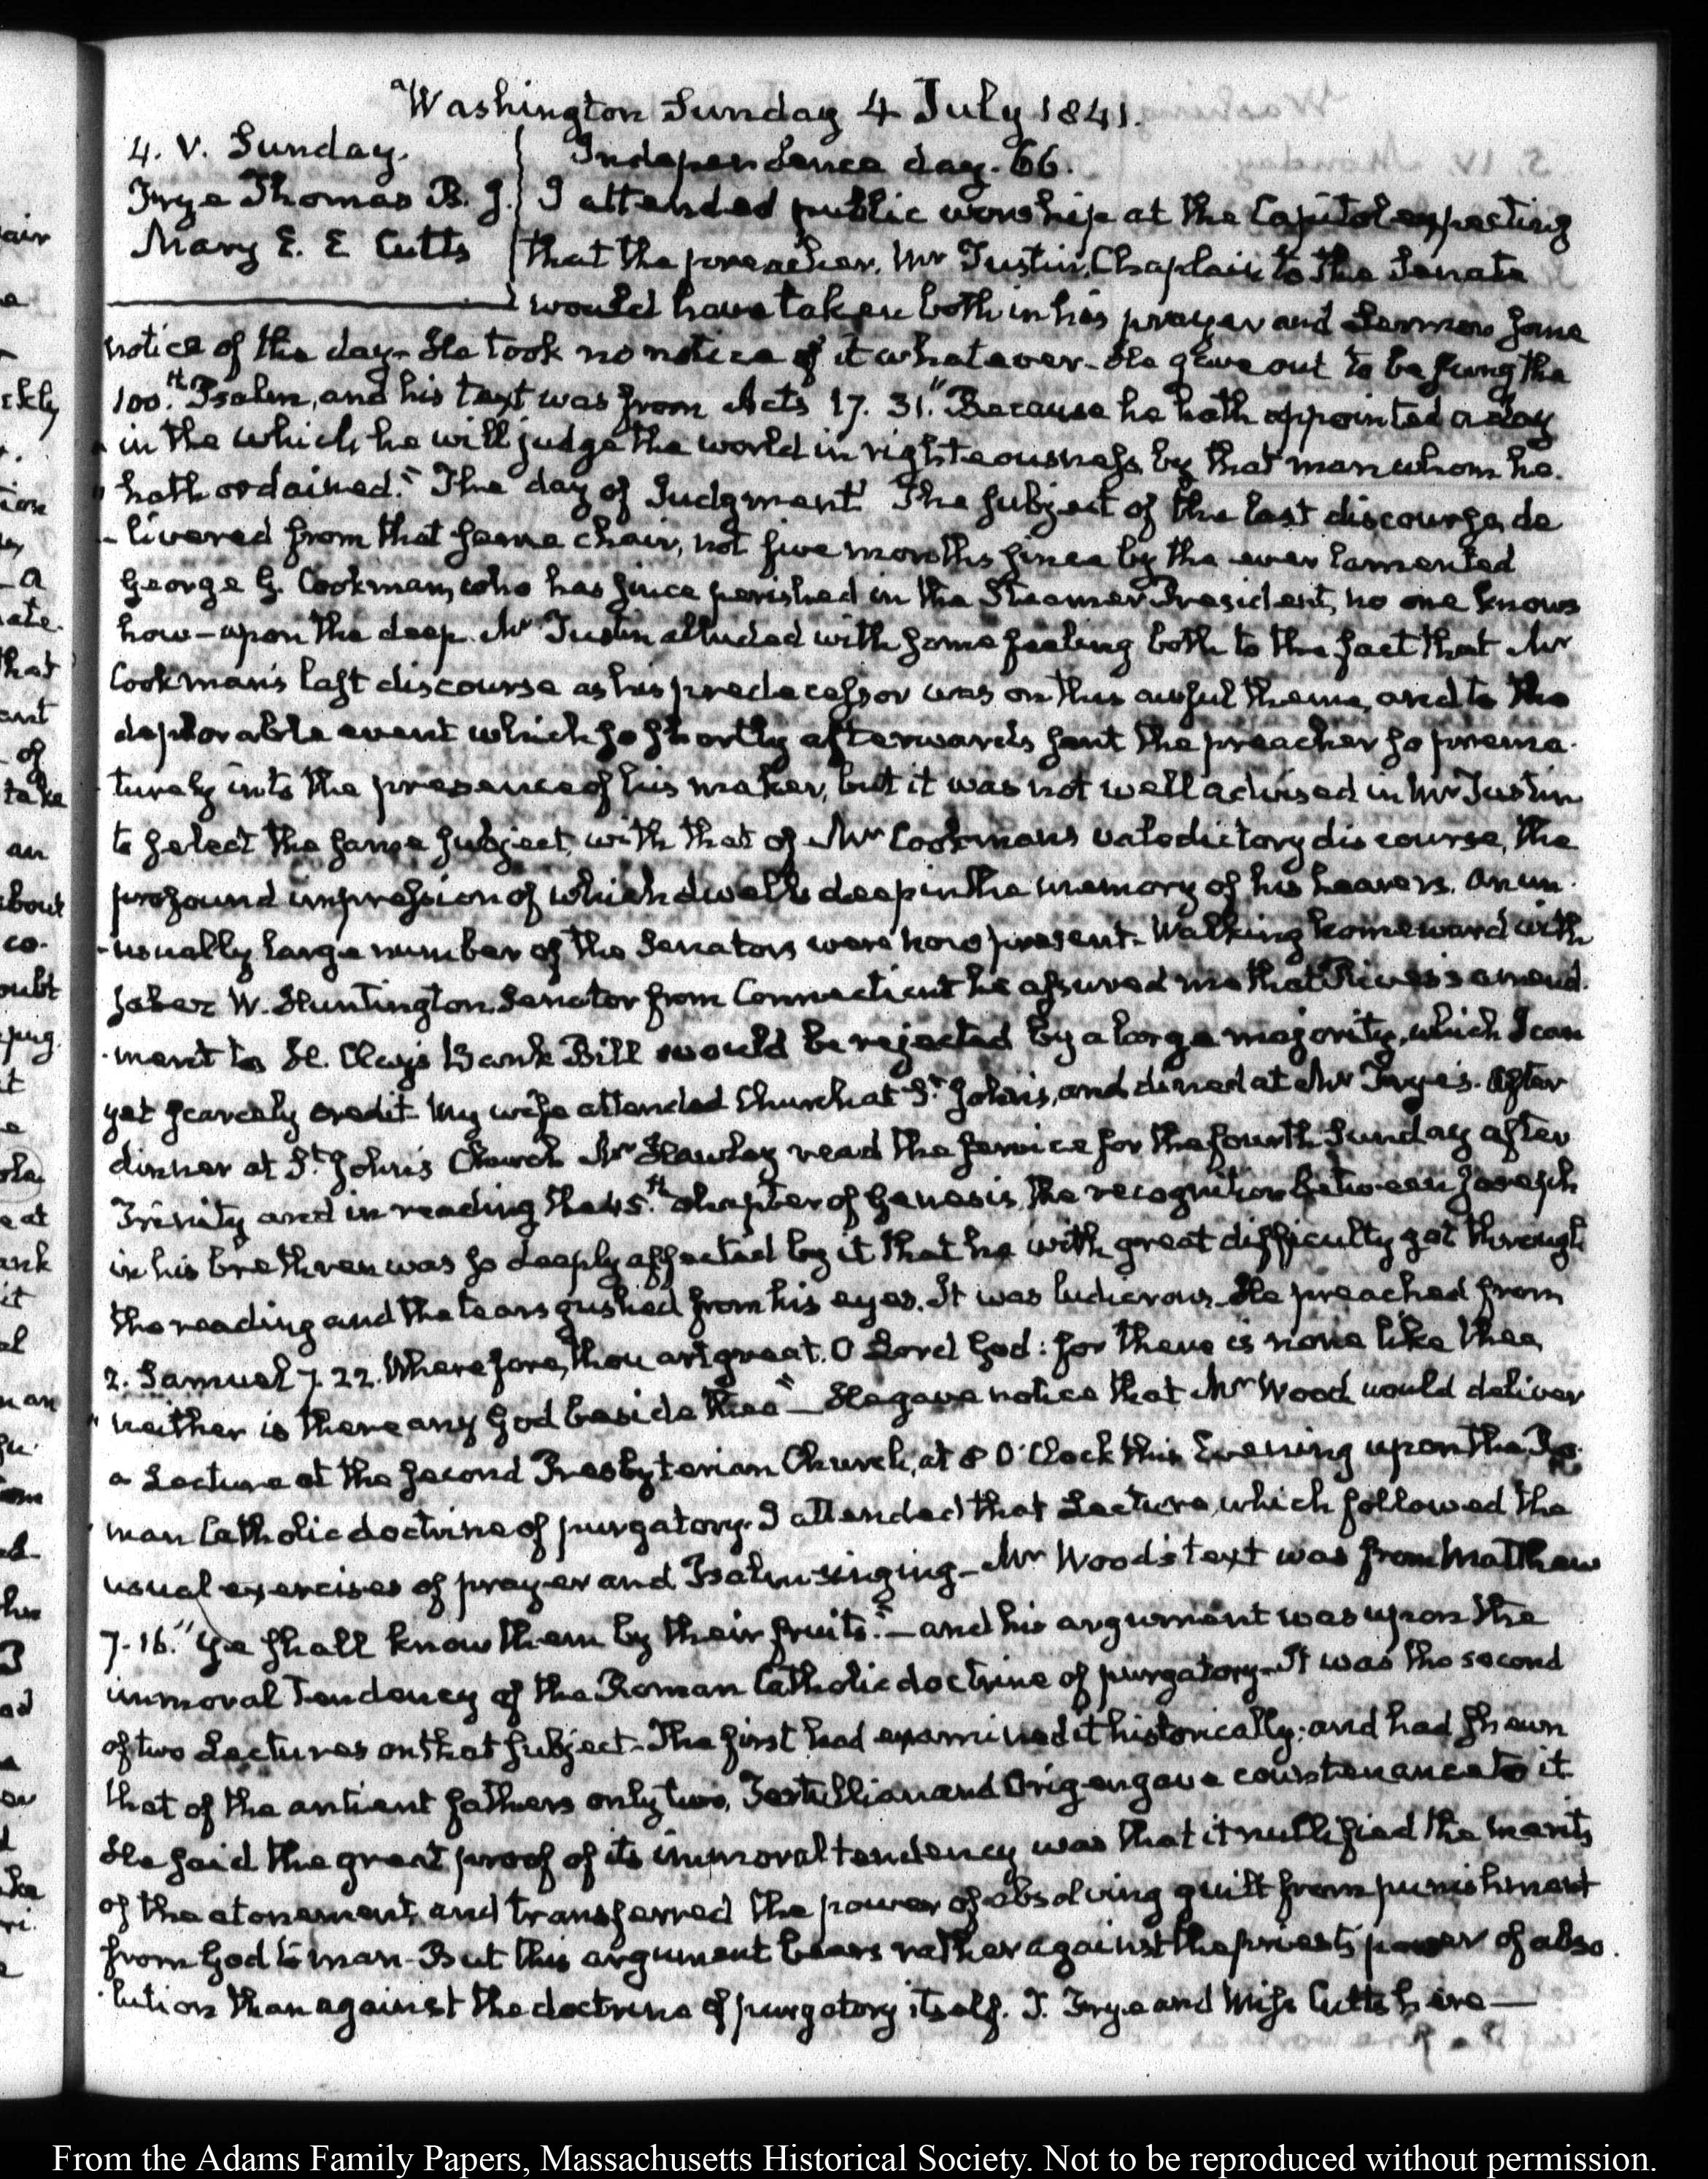 Washington Sunday 4 July 1841.
4. V. Sunday.
Frye Thomas B. J.
Mary E. E Cutts
Independence day. 66.
I attended public worship at the Capitol expecting
that the preacher, Mr Tustin, Chaplain to the Senate
would have taken both in his prayer and Sermon some
notice of the day– He took no notice of it whatever– He gave out to be sung the
100.th Psalm, and his text was from Acts 17. 31. "Because he hath appointed a day
" in the which he will judge the world in righteousness, by that man whom he
" hath ordained." The day of Judgment! The subject of the last discourse, de
- livered from that same chair, not five months since by the ever lamented
George G. Cookman, who has since perished in the Steamer President, no one knows
how– upon the deep. Mr Tustin alluded with some feeling both to the fact that Mr
Cookman's last discourse as his predecessor was on this awful theme, and to the
deplorable event which so shortly afterwards sent the preacher so prema-
turely into the presence of his maker, but it was not well advised in Mr Tustin
to select the same subject, with that of Mr Cookman's valedictory discourse, the
profound impression of which dwells deep in the memory of his hearers. An un-
-usually large number of the Senators were now present– Walking homeward with
Jabez W. Huntington Senator from Connecticut he assured me that Rives's amend-
-ment to H. Clay's Bank Bill would be rejected by a large majority, which I can
yet scarcely credit– My wife attended Church at St. John's, and dined at Mr Frye's. After
dinner at St. John's Church Mr Hawley read the service for the fourth Sunday after
Trinity and in reading the 45.th chapter of Genesis, the recognition between Joseph
in his brethren was so deeply affected by it that he with great difficulty got through
the reading and the tears gushed from his eyes. It was ludicrous– He preached from
2. Samuel 7. 22. Wherefore, thou art great, O Lord God: for there is none like thee,
" neither is there any God beside thee"– He gave notice that Mr Wood would deliver
a Lecture at the second Presbyterian Church, at 8 O'Clock this Evening upon the Ro-
-man Catholic doctrine of purgatory. I attended that Lecture, which followed the
usual exercises of prayer and Psalm-singing– Mr Wood's text was from Matthew
7. 16. "Ye shall know them by their fruits."– and his argument was upon the
immoral tendency of the Roman Catholic doctrine of purgatory– It was the second
of two Lectures on that subject– The first had examined it historically; and had shewn
that of the antient fathers only two, Tertullian and Origen gave countenance to it
He said the great proof of its immoral tendency was that it nullified the merits
of the atonement, and transferred the power of absolving guilt from punishment
from God to man– But this argument bears rather against the priest's power of abso-
-lution than against the doctrine of purgatory itself. T. Frye and Miss Cutts here—
From the Adams Family Papers, Massachusetts Historical Society. Not to be reproduced without permission.